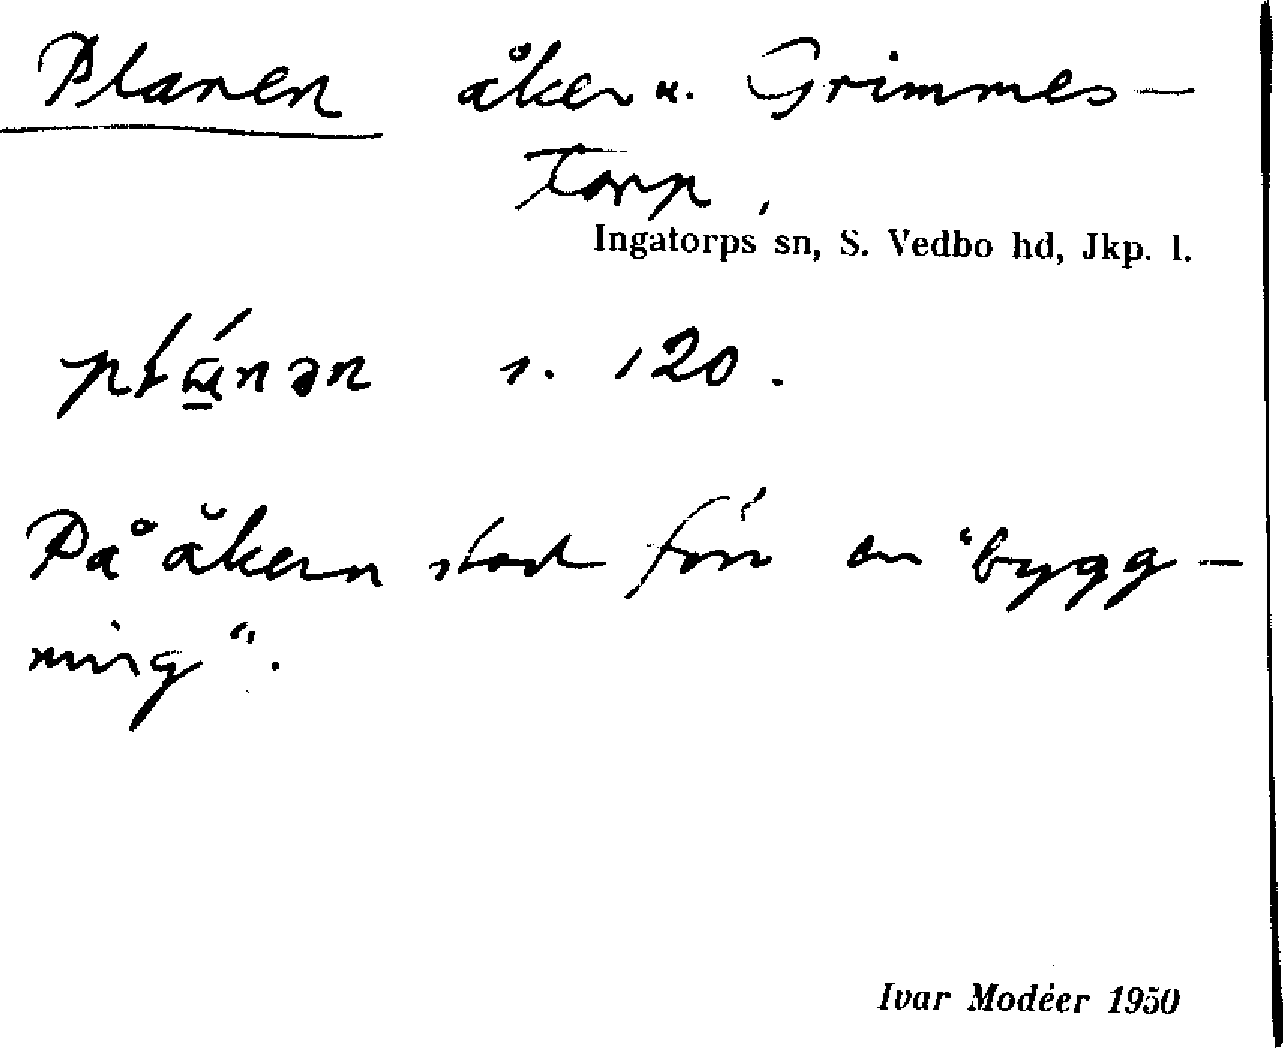 Planen åker u. Grimmes-
torp,
Ingatorps sn, S. Vedbo hd, Jkp. l.
s. 120.
På åkern stod förr en "bygg-
ning".
Ivar Modéer 1950